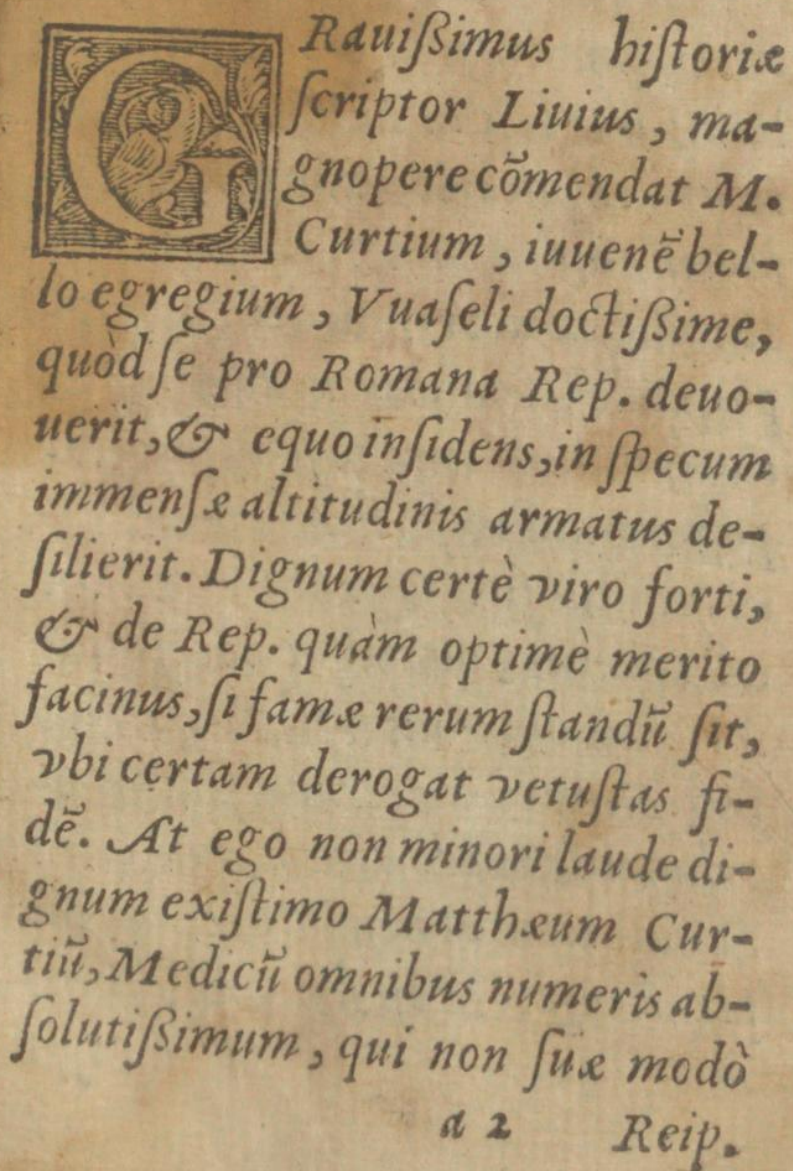 GRauißimus historiæ
ſcriptor Liuius, ma-
gnopere cōmendat M.
Curtium, iuuenē bel-
lo egregium, Vuaſeli doctißime,
quòd ſe pro Romana Rep. deuo-
uerit, & equo inſidens, in ſpecum
immenſæ altitudinis armatus de-
ſilierit. Dignum certè viro forti,
& de Rep. quàm optimè merito
facinus, ſi famæ rerum ſtandū ſit,
vbi certam derogat vetuſtas fi-
dē. At ego non minori laude di-
gnum exiſtimo Matthæum Cur-
tiū, Medicū omnibus numeris ab-
ſolutißimum, qui non ſuæ modò
a 2 Reip.